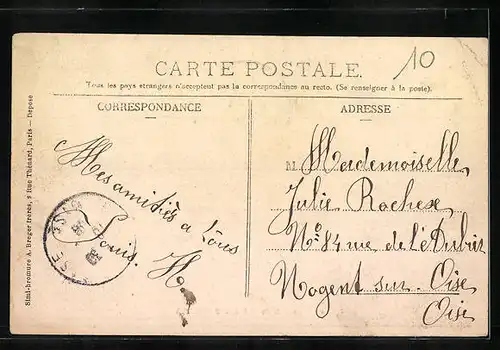 10
CARTE POSTALE.
Tous les pays étrangers n'acceptent pas la correspondance au recto. (Se renseigner à la poste).
CORRESPONDANCE
ADRESSE
Simi-bromure A. Breger frères, 9 Rue Thénard, Paris — Déposé
Mes amitiés a
Louis.
H.
Mademoiselle,
Julie Rochex
Nº 84 rue de l'
Nogent sur Oise
Oise